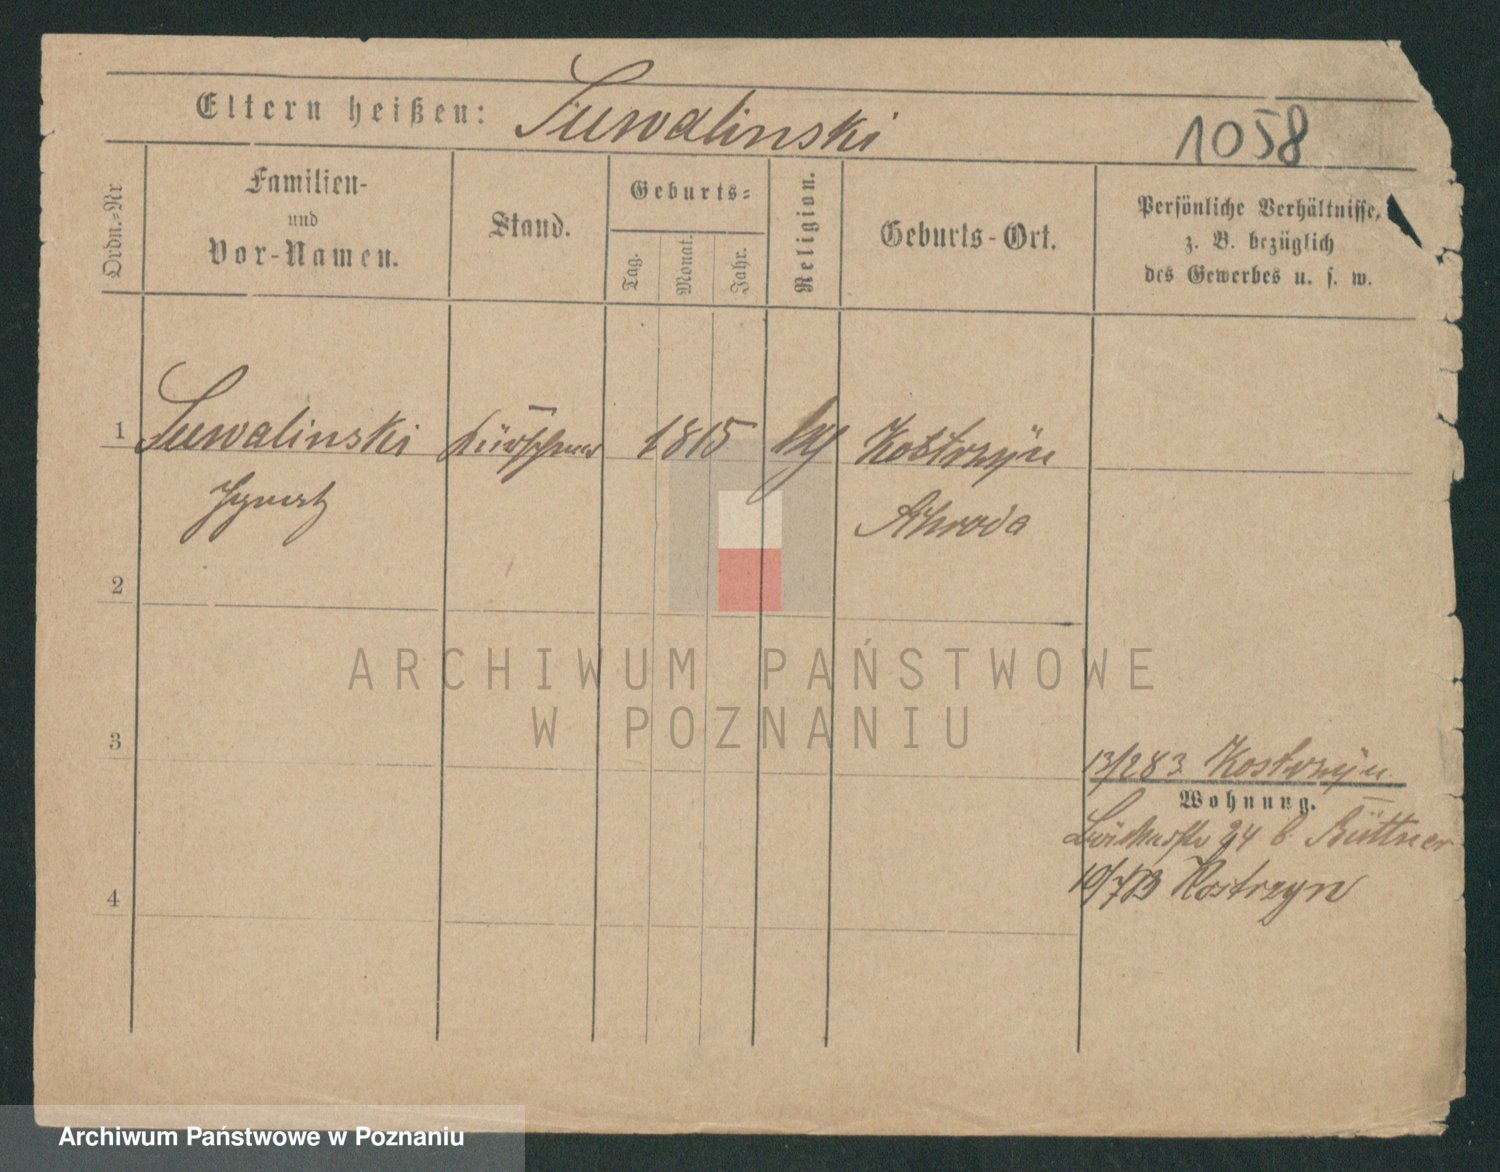 Eltern heißen: Suwalinski
1058
Ordn.=Nr
Familien-
und
Vor-Namen.
Stand.
Geburts=
Tag.
Monat.
Jahr.
Religion.
Geburts-Ort.
Persönliche Verhältnisse,
z. B. bezüglich
des Gewerbes u. s. w.
1 Suwalinski Kürschner 1815 Kostrzyn
Schroda
2
ARCHIWUM PAŃSTWOWE
W POZNANIU
3
13/2 83 Kostrzyn
Wohnung.
24 b. Büttner
Kostrzyn
4
Archiwum Państwowe w Poznaniu